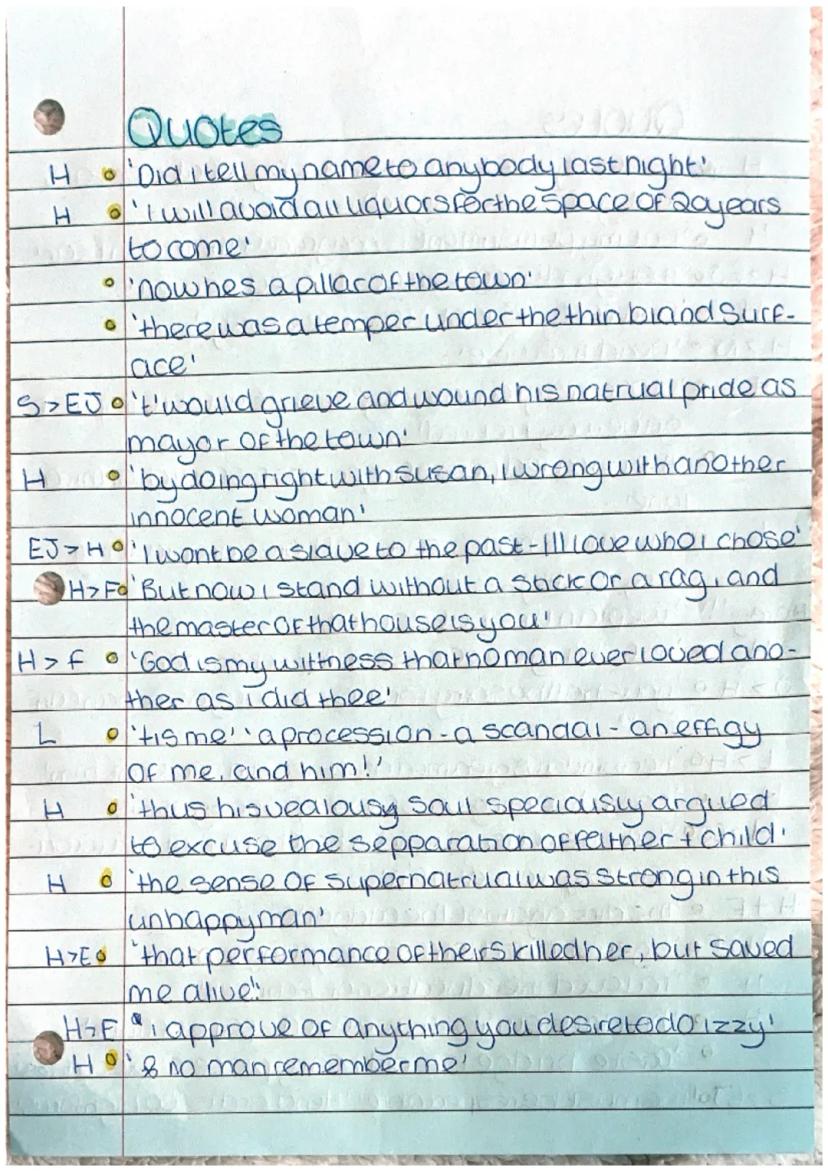 Quotes
H 'Did i tell my name to anybody last night'
H 'I will avoid all liquors for the space of 20 years
to come'
'now hes a pillar of the town'
'there was a temper under the thin bland surf-
ace'
S > EJ 't'would grieve and wound his natrual pride as
mayor of the town'
H 'by doing right with susan, I wrong with another
innocent woman'
EJ > H 'I wont be a slave to the past - I'll love who i chose'
H > F 'But now i stand without a stick or a rag, and
the master of that house is you'
H > F 'God is my witness that no man ever loved ano-
ther as i did thee'
L 'tis me' 'a procession - a scandal - an effigy
of me, and him!'
H 'thus his vealousy soul speciously argued
to excuse the sepparation of father + child'
H 'the sense of supernatrual was strong in this
unhappy man'
H > E 'that performance of theirs killed her, but saved
me alive'
H > F 'i approve of anything you desire to do izzy'
H '& no man remember me'